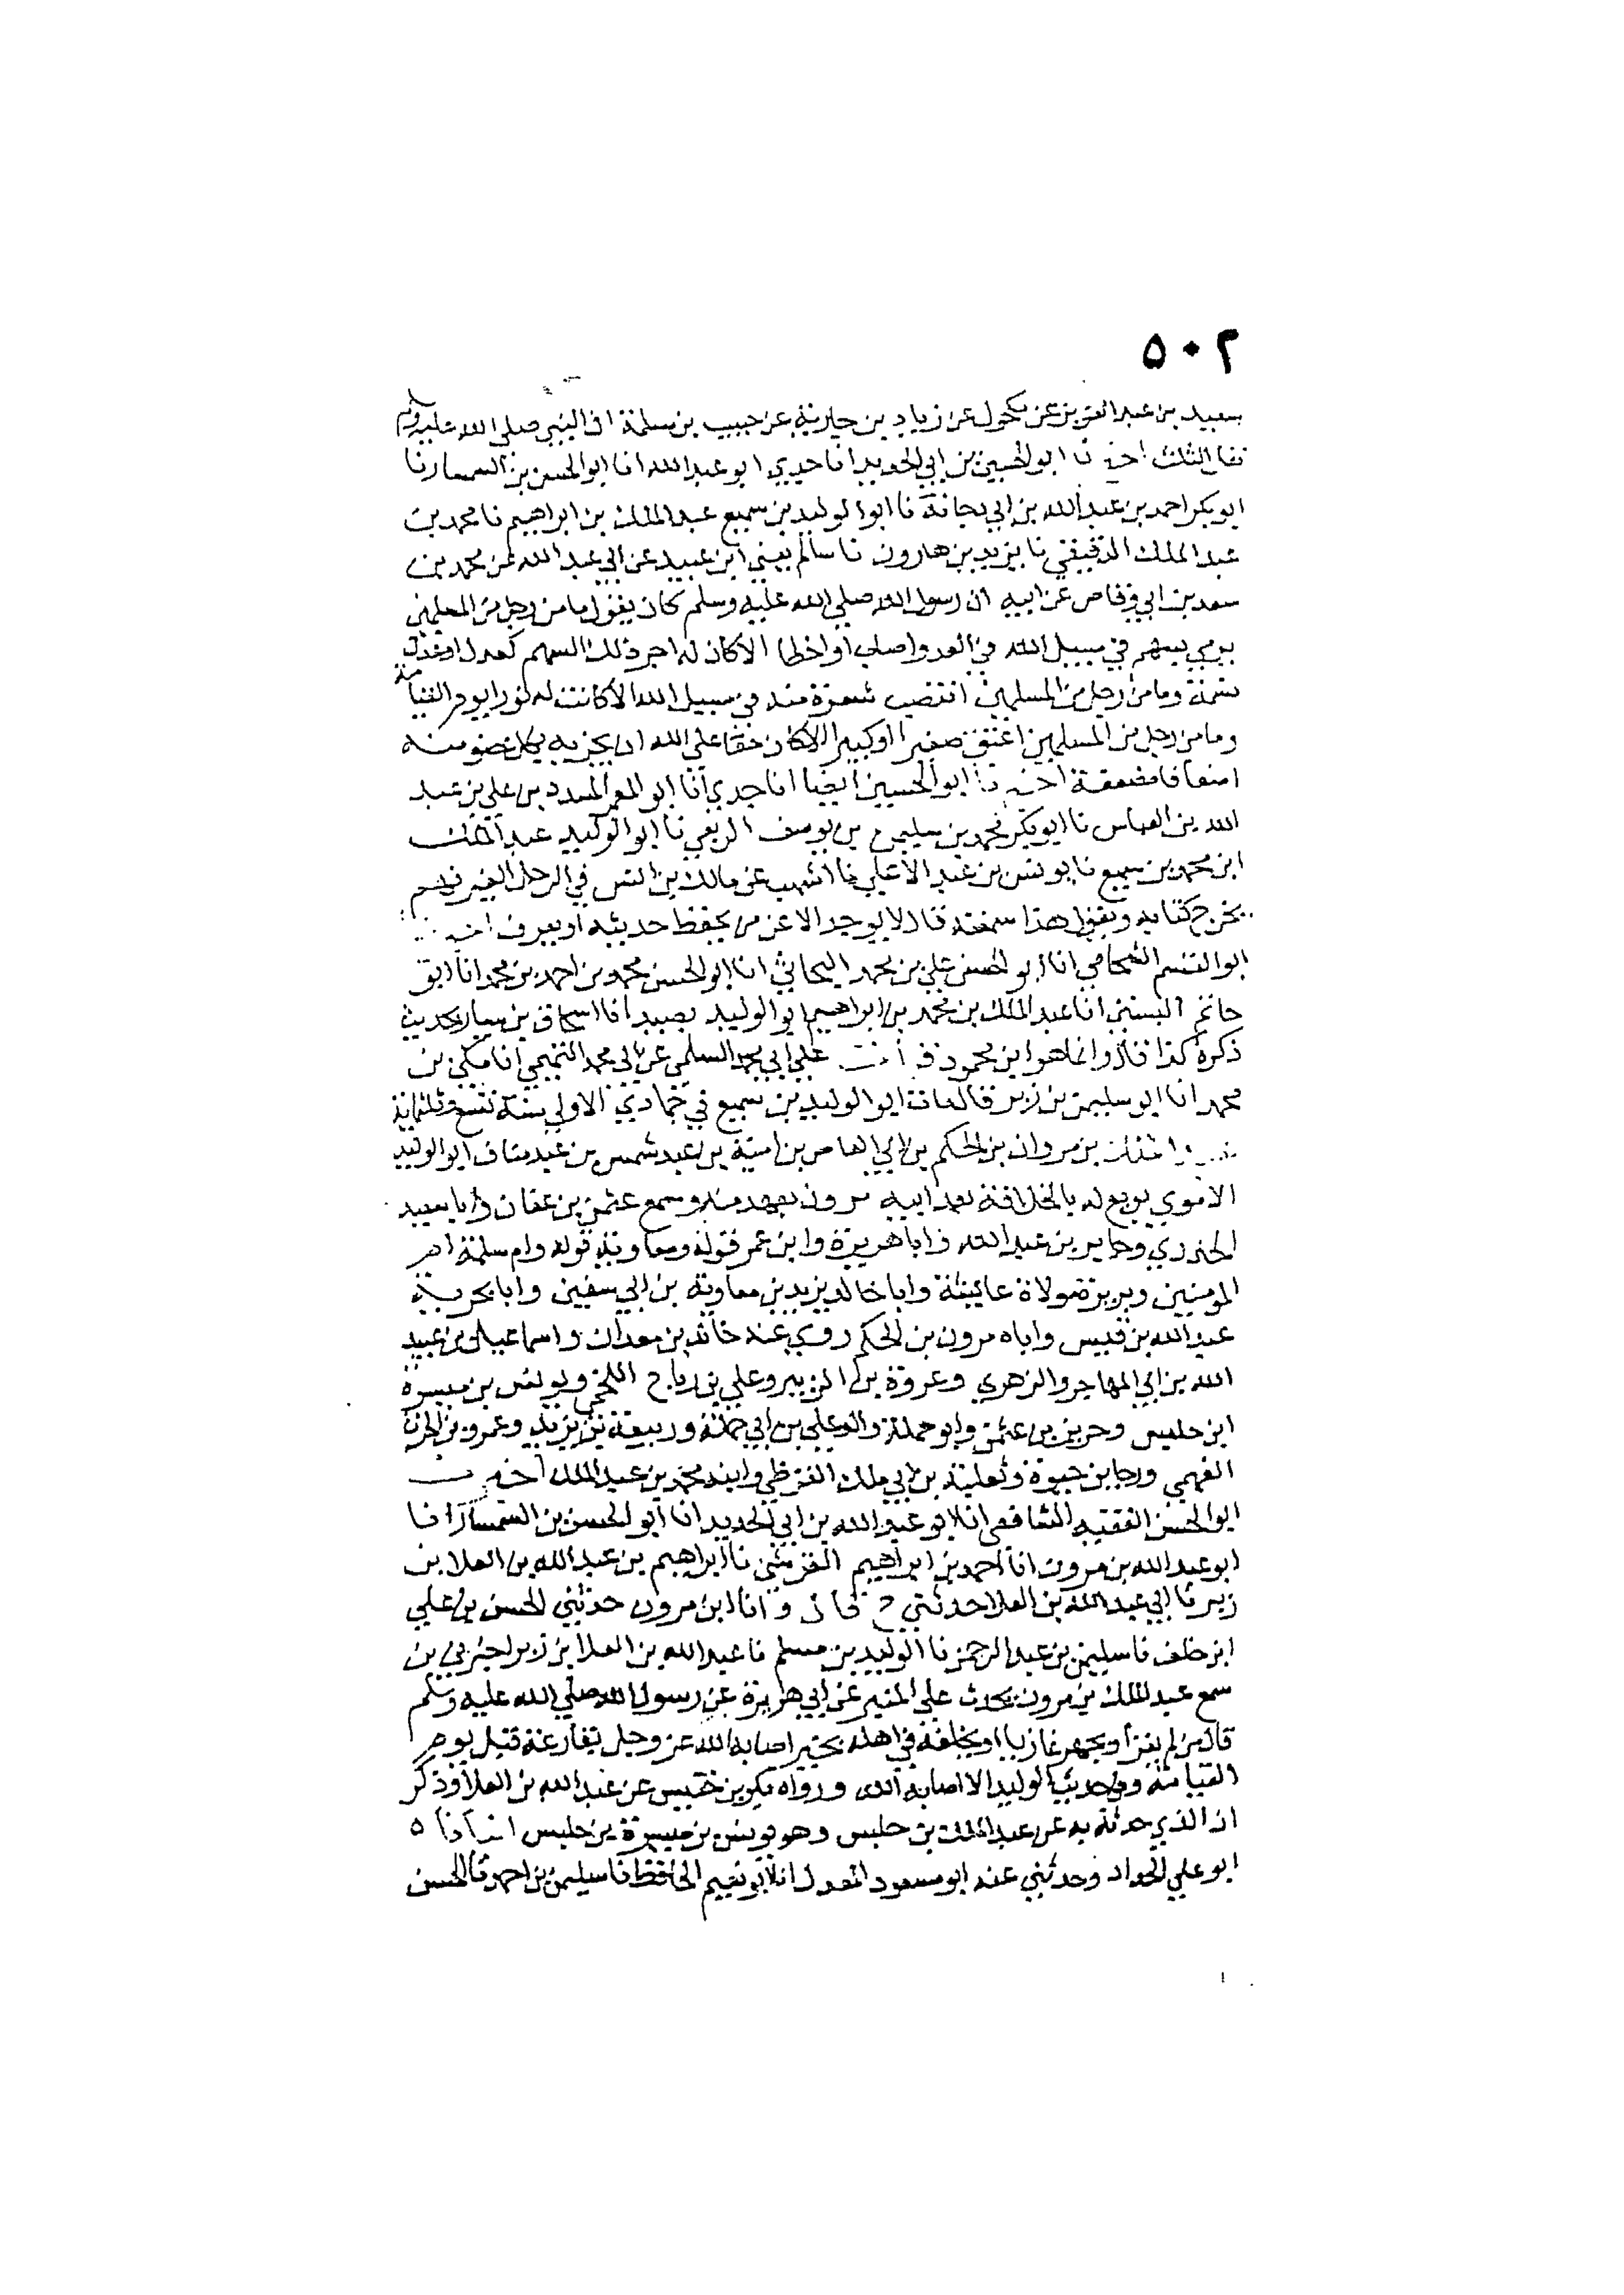 ٥٠٢
سعيد بن عبد العزيز عن مكحول عن زياد بن جارية عن حبيب بن مسلمة ان النبي صلى الله عليه وسلم
نفل الثلث اخبرنا ابو الحسين بن ابي الحديد انا جدي ابو عبد الله انا ابو الحسن بن السمسار نا
ابو بكر احمد بن عبد الله بن ابي دجانة نا ابو الوليد بن سميع عبد الملك بن ابراهيم نا محمد بن
عبد الملك الدقيقي نا يزيد بن هارون نا سالم يعني ابن عبيد عن ابي عبد الله عن محمد بن
سعد بن ابي وقاص عن ابيه ان رسول الله صلي الله عليه وسلم كان يقول ما من رجل من المسلمين
يرمي بسهم في سبيل الله في العدو اصاب او اخطا الا كان له اجر ذلك السهم كعدل
نسمة وما من رجل من المسلمين ابيضت شعرة منه في سبيل الله الا كانت له نورا يوم القيامة
وما من رجل من المسلمين اعتق صغيرا او كبيرا الا كان حقا علي الله ان يجزيه بكل عضو منه
اضعافا مضعفة اخبرنا ابو الحسين ايضا انا جدي انا ابو المعمر المسدد بن علي بن عبد
الله بن العباس نا ابو بكر محمد بن سليمن بن يوسف الربعي نا ابو الوليد عبد الملك
ابن محمد بن سميع نا يونس بن عبد الاعلي نا اشهب عن مالك بن انس في الرجل الغير فهم
يخرج كتابه ويقول هذا سمعته قال لا يوخذ الا عن من يحفظ حديثه او يعرف
ابو القسم الشحامي انا ابو الحسن علي بن محمد البحاثي انا ابو الحسن محمد بن احمد بن محمد انا ابو
حاتم البستي انا عبد الملك بن محمد بن ابراهيم ابو الوليد بصيدا نا اسحاق بن سيار بحديث
ذكره كذا قال وانما هو ابن محمود قرأت علي ابي محمد السلمي عن ابي محمد التميمي انا مكي بن
محمد انا ابو سليمن بن زبر قال مات ابو الوليد بن سميع في جمادي الاولي سنة تسع وثلثمائة
بن مروان بن الحكم بن ابي العاص بن امية بن عبد شمس بن عبد مناف ابو الوليد
الاموي بويع له بالخلافة بعد ابيه مرون بعهد منه وسمع عثمن بن عفان وابا سعيد
الخدري وجابر بن عبد الله وابا هريرة وابن عمر قوله ومعاوية قوله وام سلمة ام
المومنين وبريرة مولاة عائشة وابا خالد يزيد بن معاوية بن ابي سفين وابا بحرية
عبد الله بن قيس واباه مرون بن الحكم روي عنه خالد بن معدان واسماعيل بن عبيد
الله بن ابي المهاجر والزهري وعروة بن الزبير وعلي بن رباح اللخمي ويونس بن ميسرة
ابن حلبس وحريز بن عثمن وابو حملة والد علي بن ابي حملة وربيعة بن يزيد وعمرو بن الحرث
الفهمي ورجا بن حيوة وثعلبة بن ابي ملك القرظي وابنه محمد بن عبد الملك
ابو الحسن الفقيه الشافعي انا ابو عبد الله بن ابي الحديد انا ابو الحسن بن السمسار انا
ابو عبد الله بن مرون انا احمد بن ابراهيم القرشي نا ابراهيم بن عبد الله بن العلا بن
زبر نا ابي عبد الله بن العلا حدثني ح قال وانا ابن مرون حدثني الحسن بن علي
ابن خلف نا سليمن بن عبد الرحمن نا الوليد بن مسلم نا عبد الله بن العلا بن زبر
سمع عبد الملك بن مرون يحدث علي المنبر عن ابي هريرة عن رسول الله صلي الله عليه وسلم
قال من لم يغز او يجهز غازيا او يخلفه في اهله بخير اصابه الله عز وجل بقارعة قبل يوم
القيامة وفي حديث الوليد الا اصابه الله ورواه بكر بن خنيس عن عبد الله بن العلا وذكر
ان الذي حدثه به عن عبد الملك بن حلبس وهو يونس بن ميسرة بن حلبس انبأنا ٥
ابو علي الحداد وحدثني عنه ابو مسعود المعدل انا ابو نعيم الحافظ نا سليمن بن احمد نا الحسن